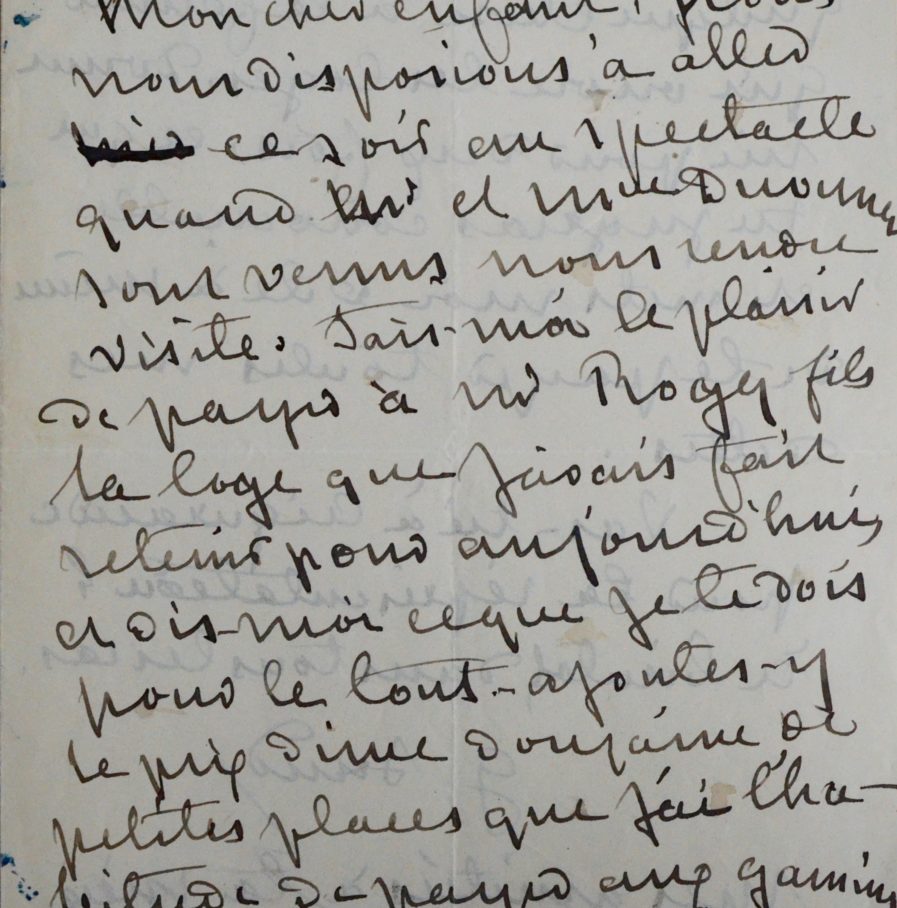 Mon cher enfant, nous
nous disposions à aller
ce soir au spectacle
quand Mr et Mme Duvauney
sont venus nous rendre
visite. Fais-moi le plaisir
de payer à Mr Rogy fils
la loge que j'avais fait
retenir pour aujourd'hui,
et dis-moi ce que je te dois
pour le tout - ajoutes-y
le prix d'une douzaine de
petites places que j'ai l'ha-
bitude de payer aux gamins